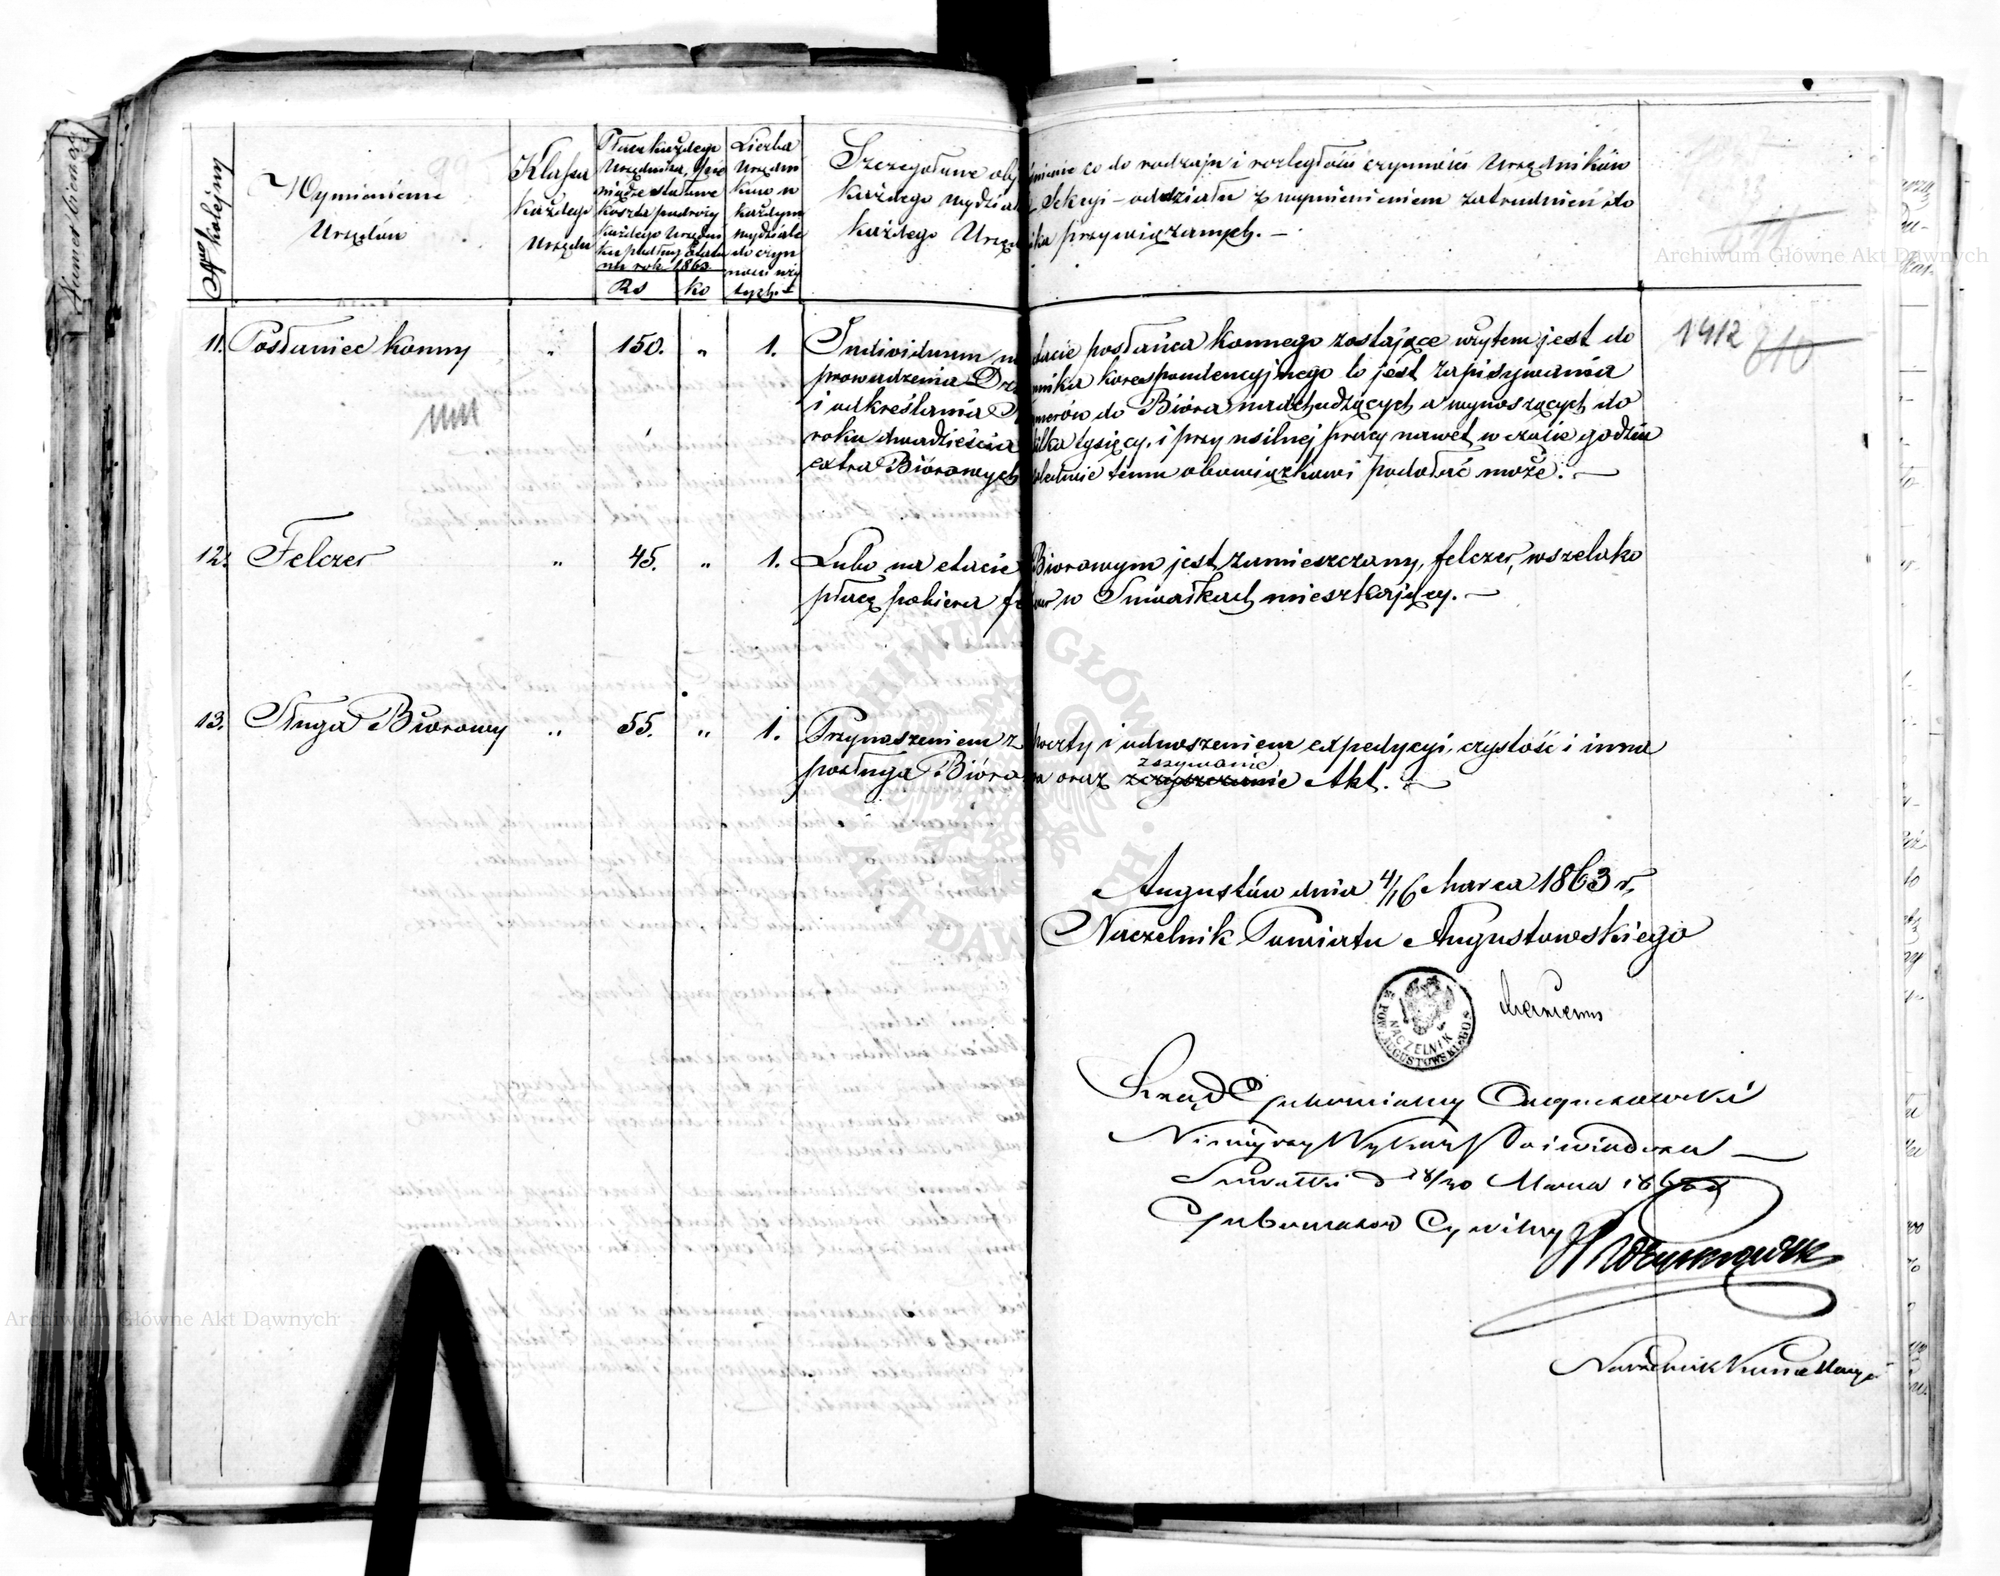 Numer bieżący
Nro kolejny
Wymienienie
Urzędów
Klassa
każdego
Urzędu
Płaca każdego
Urzędnika, tudzież
koszta podróży
każdego Urzędni
ka podług Etatu
na rok 1863
Rs ko
Liczba
Urzędni
ków w
każdym
wydziale
do czyn
ności uży
tych.
Szczegółowe objaśnienie co do rodzaju i rozległości czynności Urzędników
każdego wydziału, Sekcyi – oddziału z wymienieniem zatrudnień do
każdego Urzędnika przywiązanych. –
811
11. Posłaniec konny " 150. " 1. Individuum na etacie posłańca konnego zostające użytem jest do
prowadzenia Dziennika korespondencyjnego to jest zapisywania
i odkreślania Numerów do Bióra nadchodzących a wynoszących do
roku dwadzieścia kilka tysięcy, i przy usilnej pracy nawet w czasie godzin
extra Biórowych zaledwie temu obowiązkowi podołać może. –
1412 810
12. Felczer " 45. " 1. Lubo na etacie Biorowym jest zamieszczony, felczer, wszelako
płacę pobiera felczer w Suwałkach mieszkający. –
13. Sługa Biorowy " 55. " 1. Przynoszeniem z poczty i odnoszeniem expedycyi, czystość i inna
posługa Biórowa oraz zszywanie Akt. –
Augustów dnia 4/16 Marca 1863 r.
Naczelnik Powiatu Augustowskiego
NACZELNIK
POW: AUGUSTOWSKIEGO
Rząd Gubernialny Augustowski
Niniejszy Wykaz Poświadcza –
Suwałki d 18/30 Marca 1863 r
Gubernator Cywilny
Naczelnik Kancellaryi
Archiwum Główne Akt Dawnych
Archiwum Główne Akt Dawnych
ARCHIWUM GŁÓWNE AKT DAWNYCH